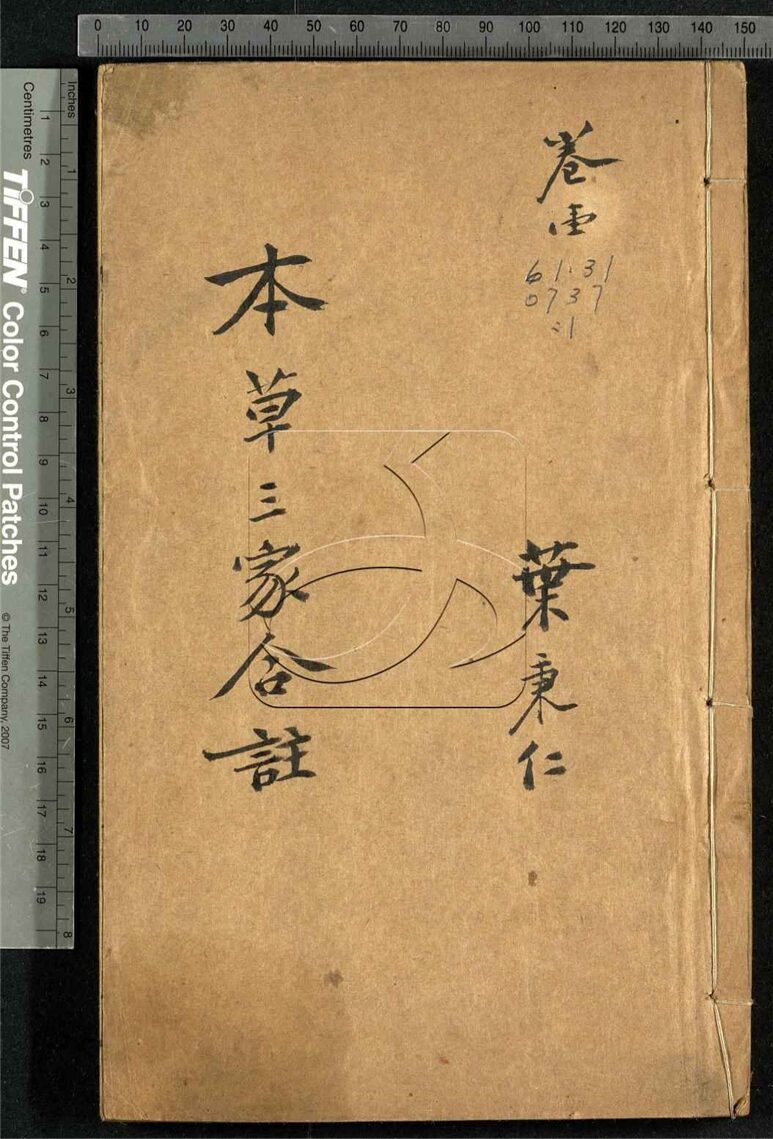 0 10 20 30 40 50 60 70 80 90 100 110 120 130 140 150
Inches
Centimetres
1 2 3 4 5 6 7 8 9 10 11 12 13 14 15 16 17 18 19
1 2 3 4 5 6 7 8
TIFFEN® Color Control Patches
© The Tiffen Company, 2007
卷
61.31
0737
:1
葉秉仁
本草三家合註